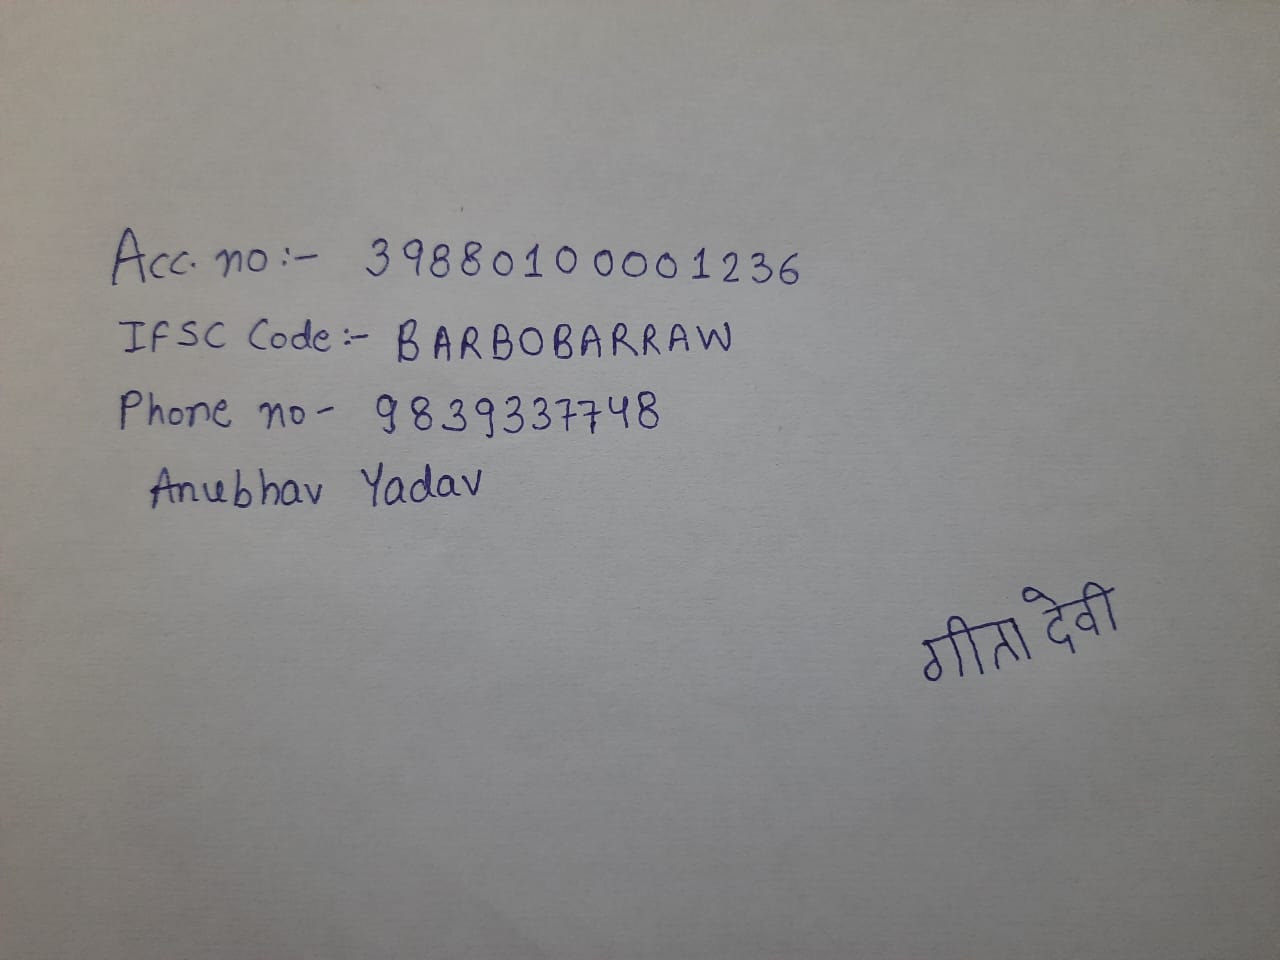 Acc. no:- 39880100001236
IFSC Code:- BARBOBARRAW
Phone no- 9839337748
Anubhav Yadav
गीता देवी